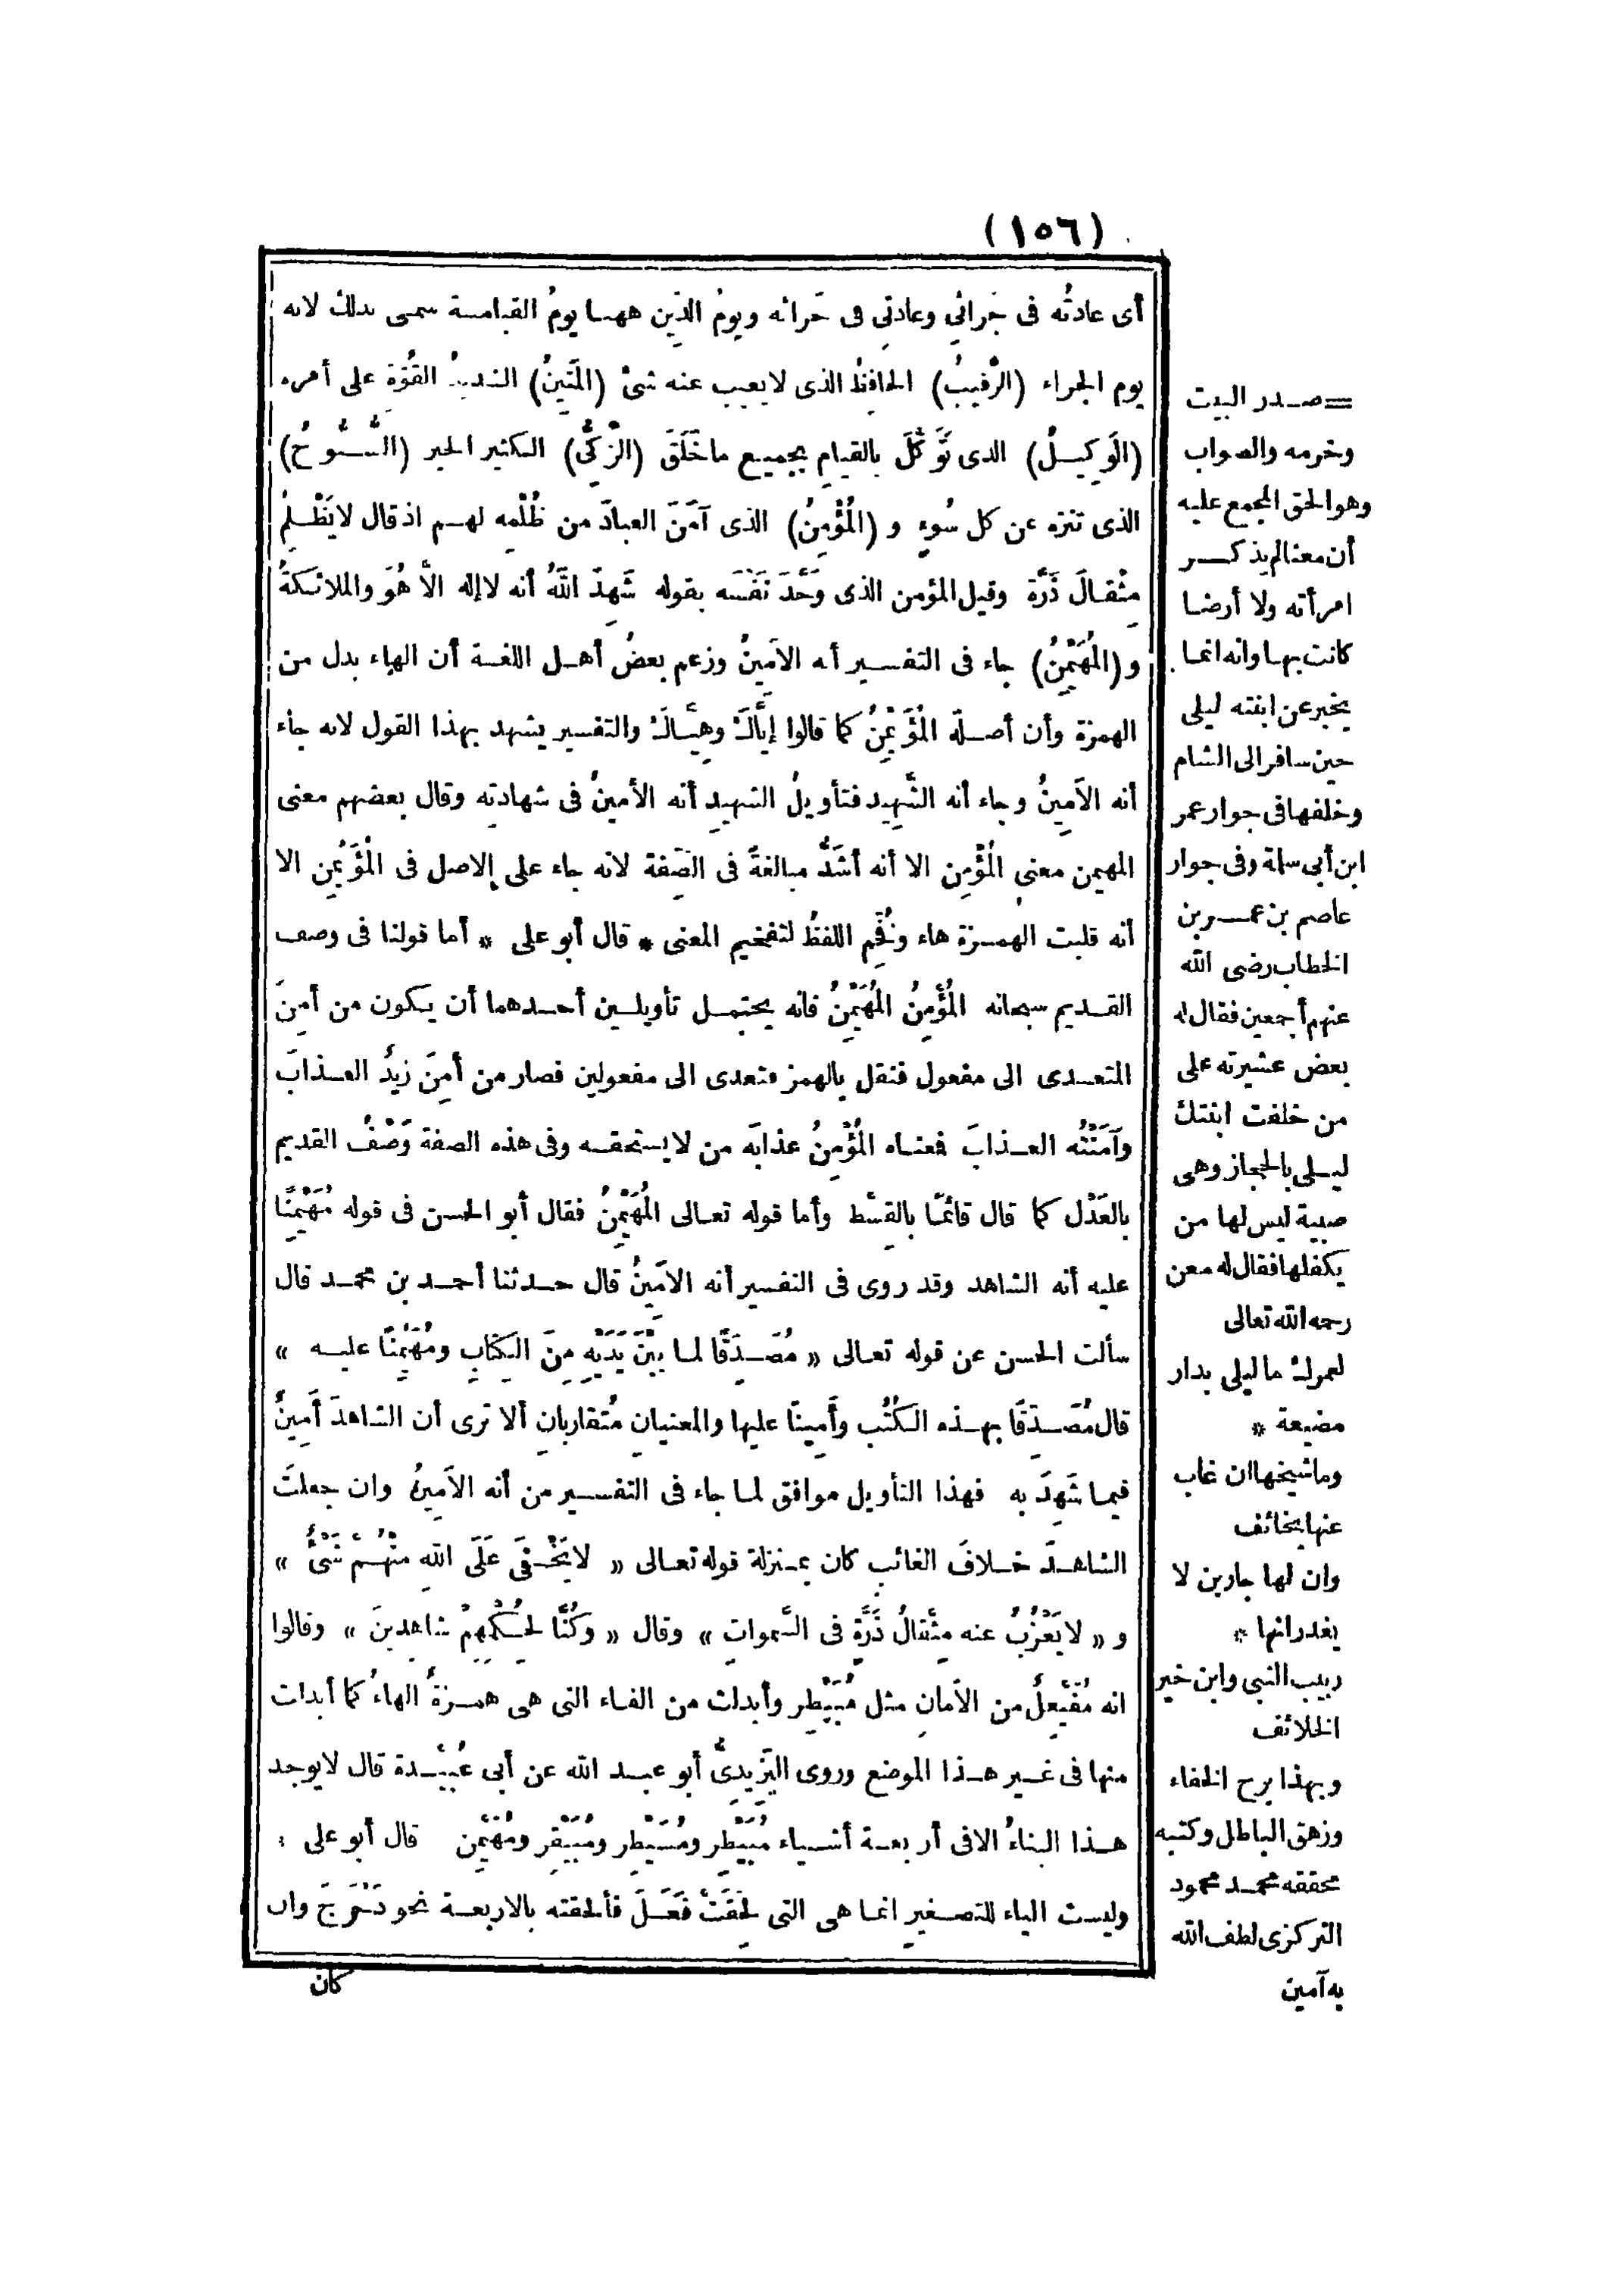 (١٥٦)
أى عادتُه فى جَزائى وعادتى فى جَزائه ويومُ الدّين ههنا يومُ القيامة سمى بذلك لانه
يوم الجزاء (الرَّقيبُ) الحافظُ الذى لايغيب عنه شئ (المَتِينُ) الشديدُ القُوّة على أمره
(الوَكيلُ) الذى تَوَكَّلَ بالقيام بجميع ماخَلَقَ (الزَّكِىُّ) الكثير الخير (السُّبُّوحُ)
الذى تنزه عن كل سُوءٍ و (المُؤْمِنُ) الذى آمَنَ العبادَ من ظُلْمِه لهم اذ قال لايَظْلِمُ
مِثْقالَ ذَرَّة وقيل المؤمن الذى وَحَّدَ نَفْسَه بقوله شَهِدَ اللهُ أنه لاإله الاَّ هُوَ والملائكةُ
و (المُهَيْمِنُ) جاء فى التفسير أنه الاَمِينُ وزعم بعضُ أهل اللغة أن الهاء بدل من
الهمزة وأن أصلَه المُؤَيْمِنُ كما قالوا إِيَّاكَ وهِيَّاكَ والتفسير يشهد بهذا القول لانه جاء
أنه الاَمِينُ وجاء أنه الشَّهِيد فتأويلُ الشهيدِ أنه الأمينُ فى شهادته وقال بعضهم معنى
المهيمن معنى المُؤْمِن الا أنه أشَدُّ مبالغةً فى الصِّفة لانه جاء على الاصل فى المُؤَيْمِن الا
أنه قلبت الهمزة هاء وفُخِّم اللفظُ لتفخيم المعنى * قال أبو على * أما قولنا فى وصف
القديم سبحانه المُؤْمِنُ المُهَيْمِنُ فانه يحتمل تأويلين أحدهما أن يكون من أَمِنَ
المتعدى الى مفعول فنقل بالهمز فتعدى الى مفعولين فصار من أَمِنَ زيدٌ العذابَ
وآمَنْتُه العذابَ فمعناه المُؤْمِنُ عذابَه من لايستحقه وفى هذه الصفة وَصْفُ القديم
بالعَدْل كما قال قائمًا بالقِسْط وأما قوله تعالى المُهَيْمِنُ فقال أبو الحسن فى قوله مُهَيْمِنًا
عليه أنه الشاهد وقد روى فى التفسير أنه الاَمِينُ قال حدثنا أحمد بن محمد قال
سألت الحسن عن قوله تعالى « مُصَدِّقًا لما بَيْنَ يَدَيْهِ مِنَ الكِتَابِ ومُهَيْمِنًا عليه »
قال مُصَدِّقًا بهذه الكُتُب وأَمِينًا عليها والمعنيانِ مُتقاربانِ ألا ترى أن الشاهدَ أَمِينٌ
فيما شَهِدَ به فهذا التأويل موافق لما جاء فى التفسير من أنه الاَمِينُ وان جعلتَ
الشاهدَ خلافَ الغائبِ كان بمنزلة قوله تعالى « لايَخْفَى عَلَى اللهِ مِنْهُمْ شَىْءٌ »
و « لايَعْزُبُ عنه مِثْقالُ ذَرَّةٍ فى السَّمواتِ » وقال « وكُنَّا لحُكْمِهِمْ شاهِدِينَ » وقالوا
انه مُفَيْعِلٌ من الاَمانِ مثل مُبَيْطِر وأبدلت من الفاء التى هى همزةُ الهاءُ كما أبدلت
منها فى غير هذا الموضع وروى اليَزِيدىُّ أبو عبد الله عن أبى عُبَيْدة قال لايوجد
هذا البناءُ الافى أربعة أشياء مُبَيْطِر ومُسَيْطِر ومُبَيْقِر ومُهَيْمِن قال أبو على :
وليست الياء للتصغير انما هى التى لَحِقَتْ فَعَلَ فألحقته بالاربعة نحو دَحْرَجَ وان
كان
= صدر البيت
وخرمه والصواب
وهو الحق المجمع عليه
أن معنا لم يذكر
امرأته ولا أرضا
كانت بها وانه انما
يخبر عن ابنته ليلى
حين سافر الى الشام
وخلفها فى جوار عمر
ابن أبى سلمة وفى جوار
عاصم بن عمر بن
الخطاب رضى الله
عنهم أجمعين فقال له
بعض عشيرته على
من خلفت ابنتك
ليلى بالحجاز وهى
صبية ليس لها من
يكفلها فقال له معن
رحمه الله تعالى
لعمرك ما ليلى بدار
مضيعة *
وما شيخها ان غاب
عنها بخائف
وان لها جارين لا
يغدرانها *
ربيب النبى وابن خير
الخلائف
وبهذا برح الخفاء
وزهق الباطل وكتبه
محققه محمد محمود
التركزى لطف الله
به آمين